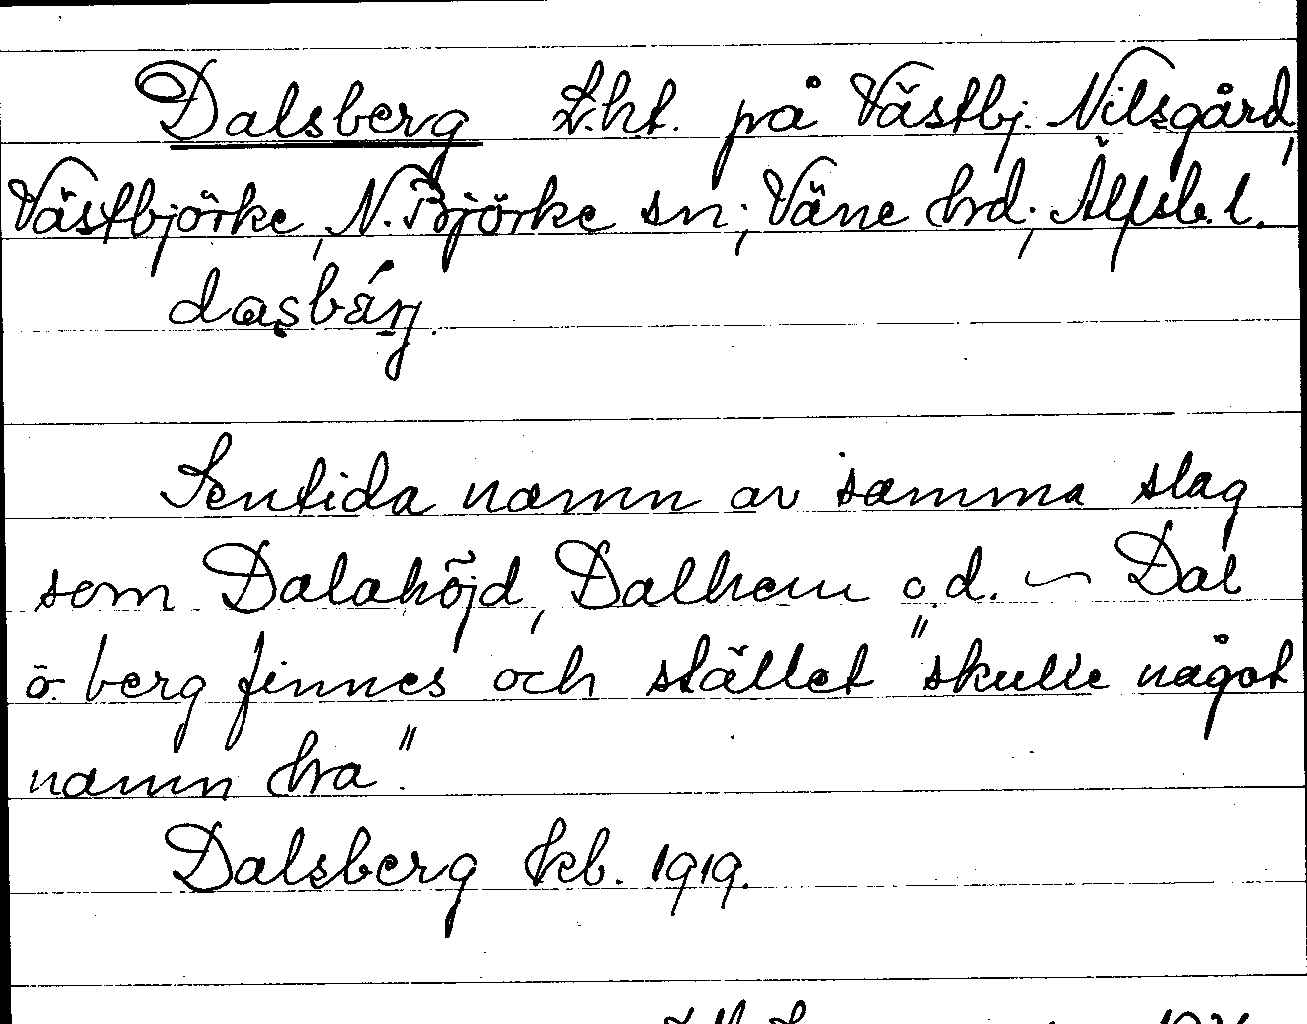 Dalsberg L.ht. på Västbj. Nilsgård,
Västbjörke, N. Björke sn; Väne hrd; Älfsb. l.
dasbárj.
Sentida namn av samma slag
som Dalahöjd, Dalhem o.d. ~ Dal
o. berg finnes och stället "skulle något
namn ha".
Dalsberg kb. 1919.